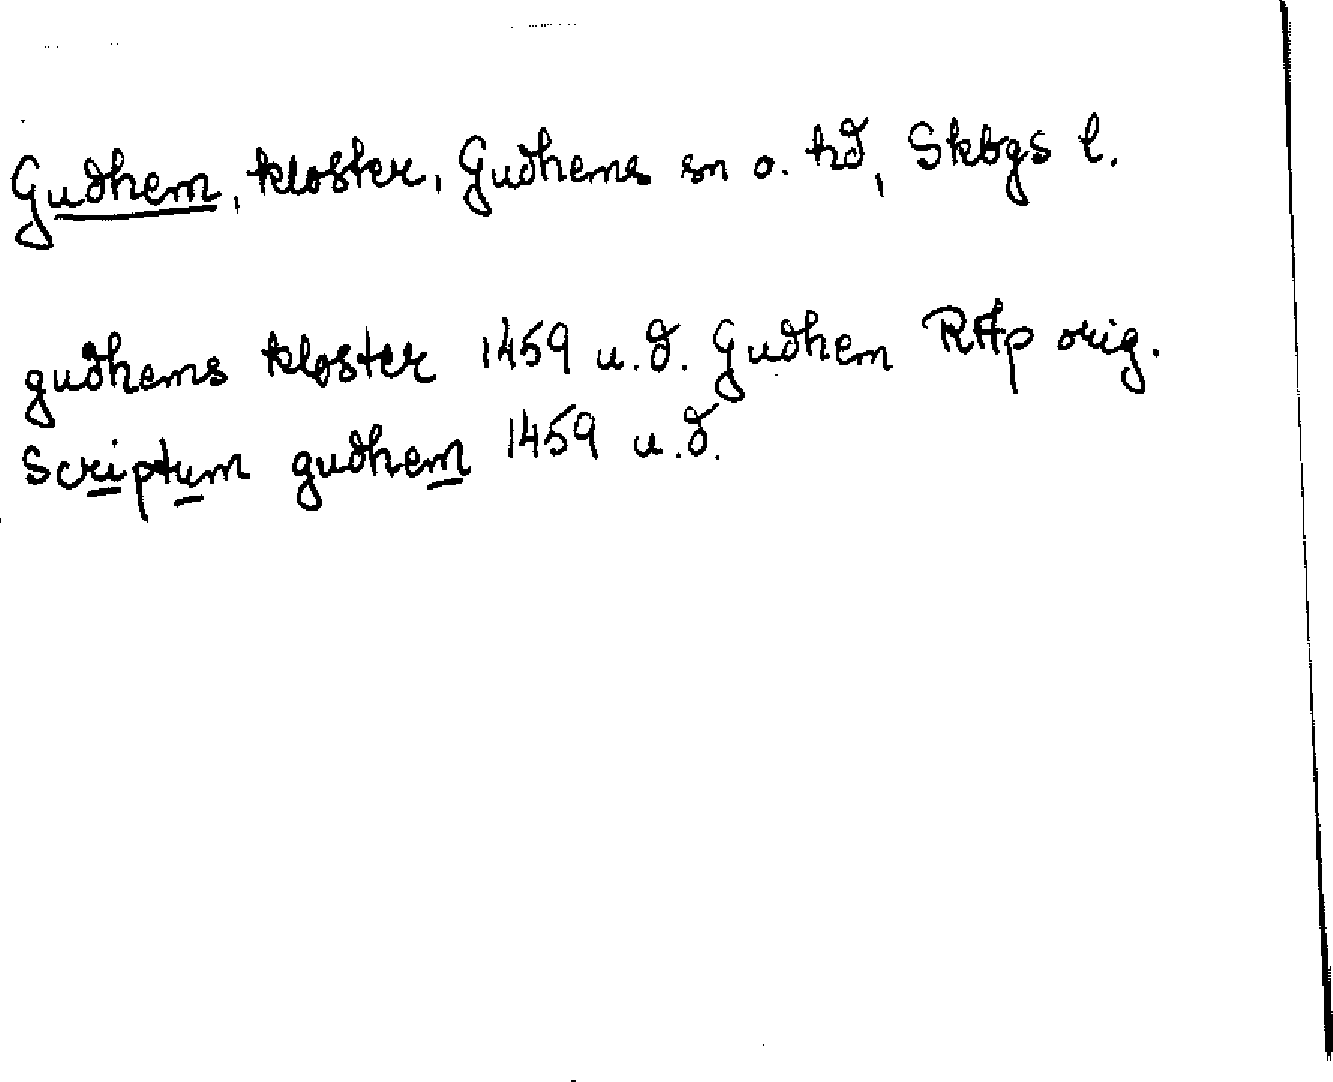 Gudhem, kloster, Gudhems sn o. hd, Skbgs l.
gudhems kloster 1459 u.d. Gudhem RAp orig.
Scriptum gudhem 1459 u.d.